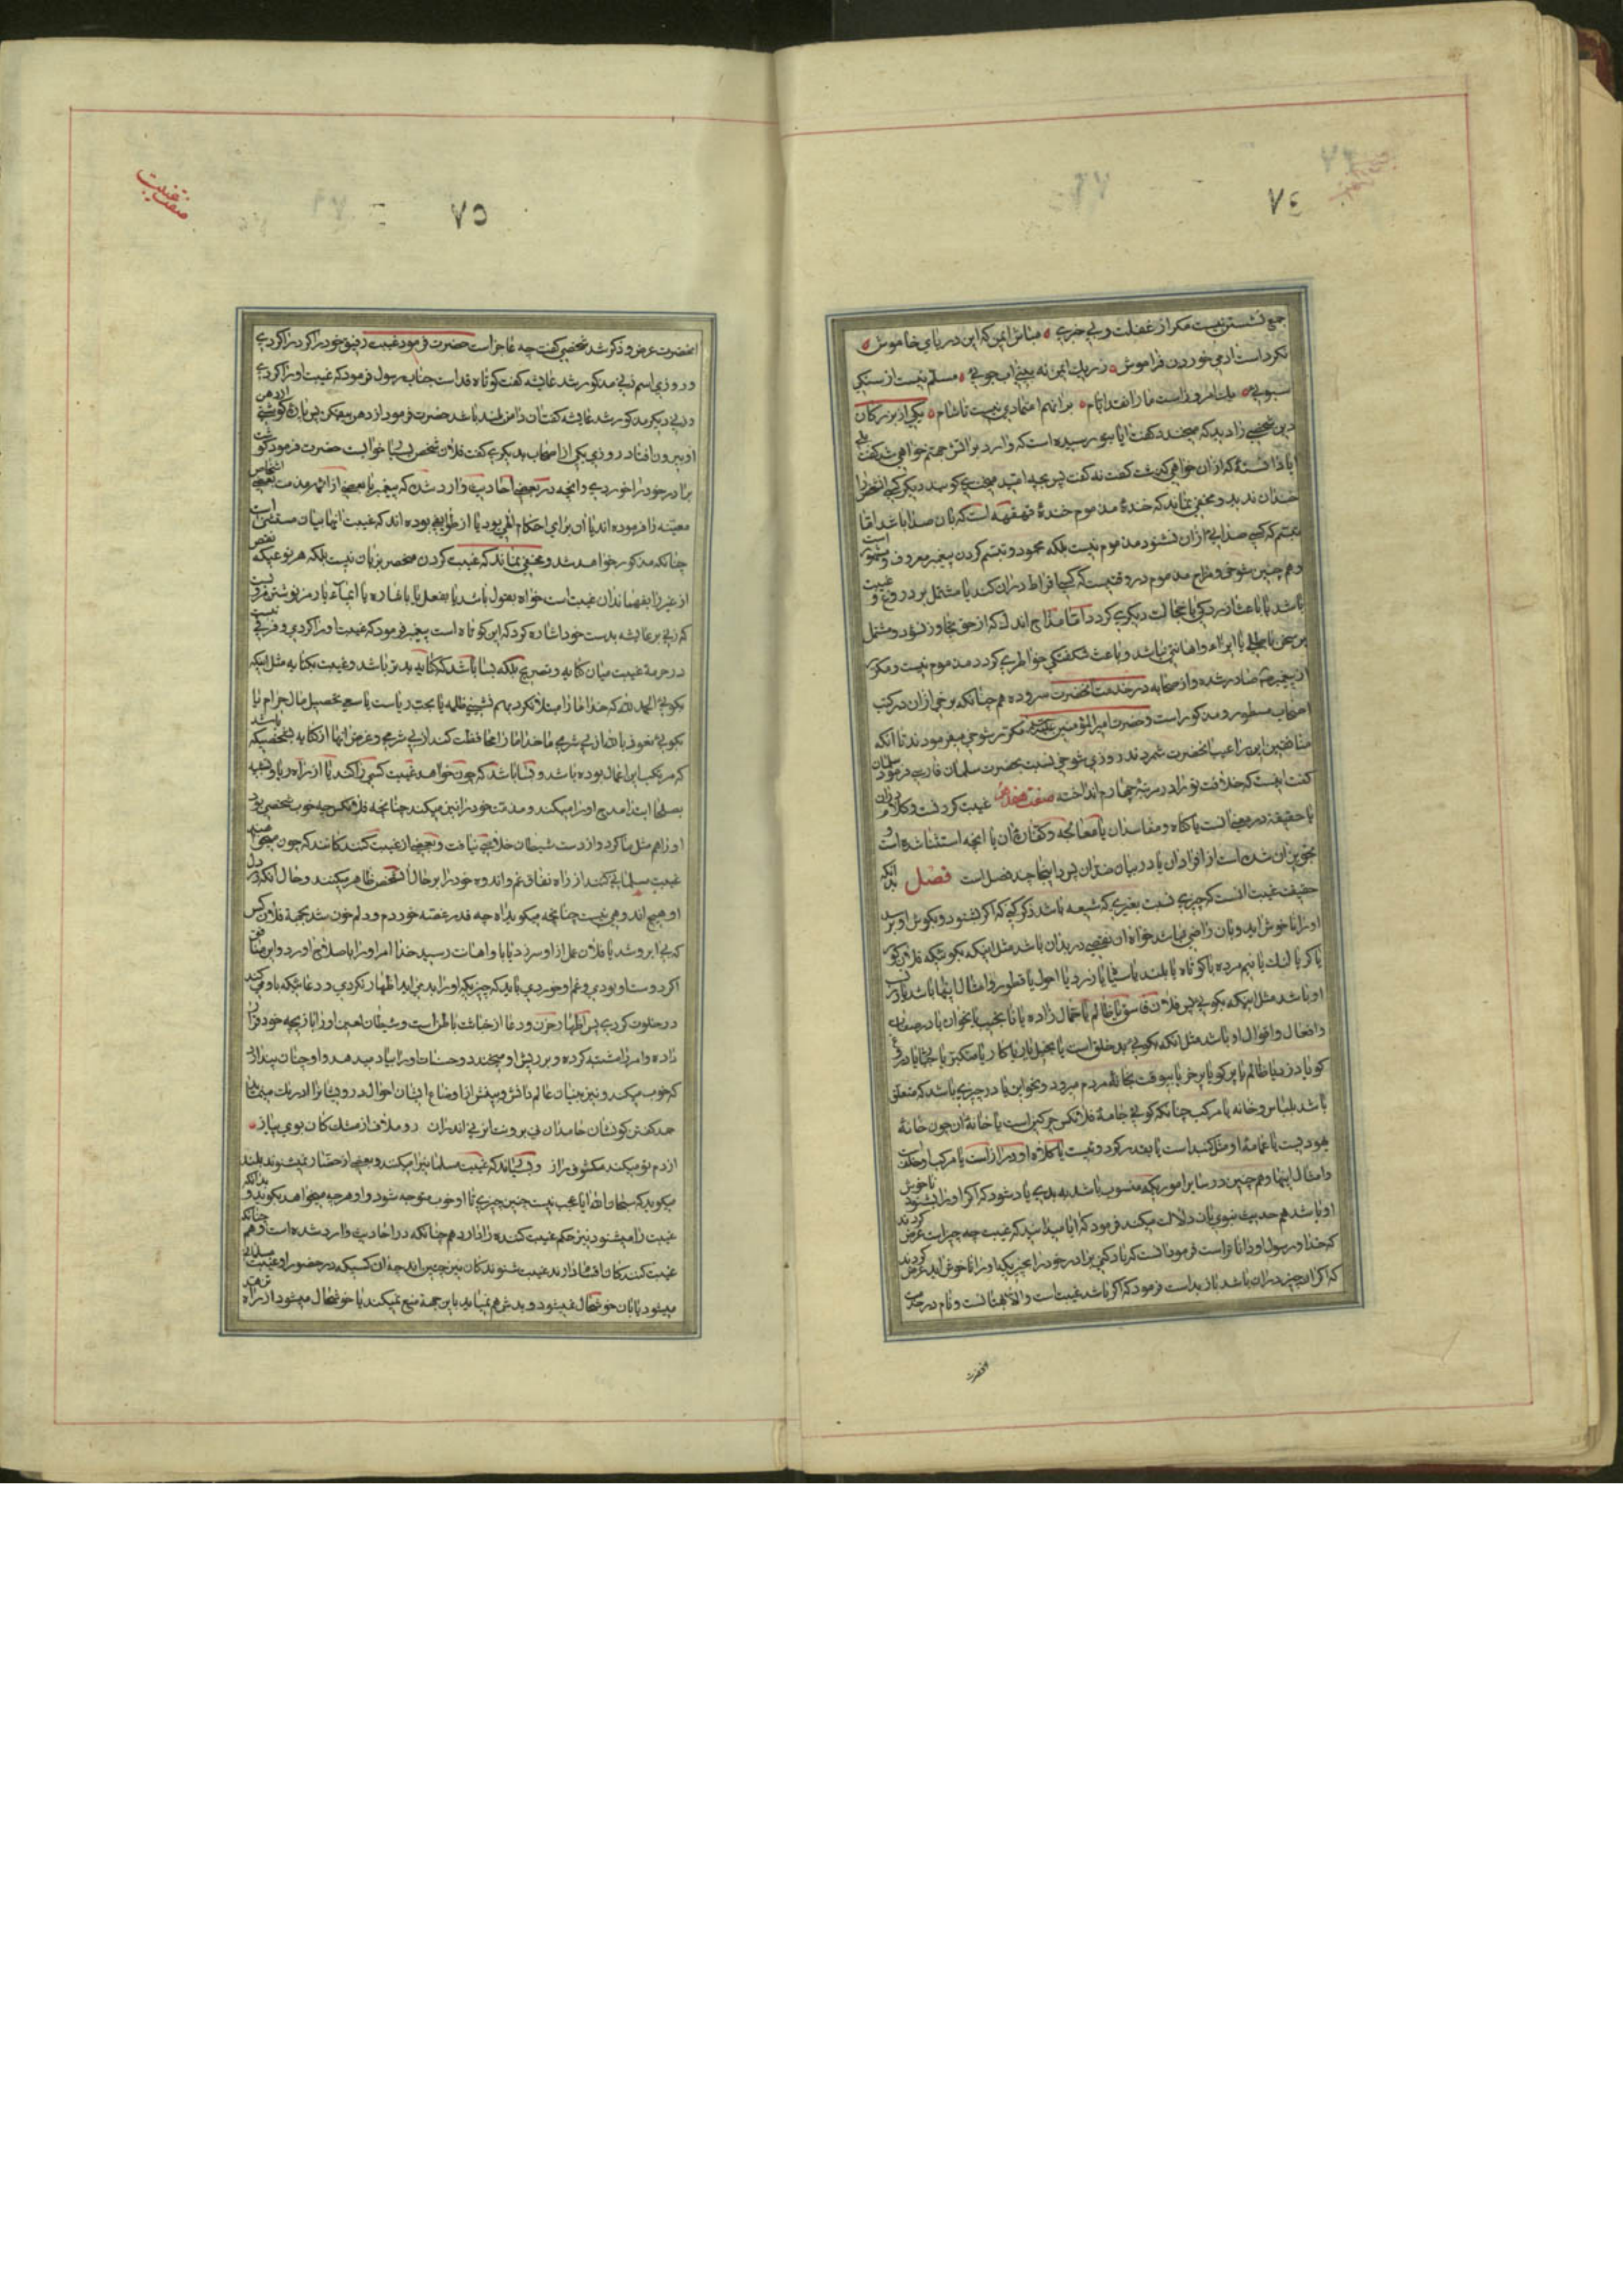 ٧٤
جمع نشستن نیست مکر از غفلت و بی خبری مباش ایمن که این دریای خاموش
نکرد است آدمی خوردن فراموش ز ریک ایمن نه بینی آب جوئی مسلم نیست از سنکی
سبوئی یکی از بزرکان
دین شخصی را دید که میخندد کفت آیا بتو رسیده است که وارد بر آتش جهنم خواهی شد کفت بلی
آیا دانسته که از آن خواهی کذشت کفت نه کفت پس بچه امید میخندی کویند دیکر کسی آن شخص را
خندان ندید و مخفی نماند که خنده مذموم خنده قهقهه است که با آن صدا باشد اما
تبسم که کسی صدایی از آن نشنود مذموم نیست بلکه محمود و تبسم کردن پیغمبر معروف و مشهور است
و هم چنین شوخی و مزاح مذموم در وقتیست که کسی افراط در آن کند یا مشتمل بر دروغ و غیبت
باشد یا باعث آزردکی یا خجالت دیکری کردد اما مزاح اندک که از حق تجاوز نشود و مشتمل
بر سخن باطلی یا ایذاء و اهانتی نباشد و باعث شکفتکی خواطری کردد مذموم نیست و مکرر
از پیغمبر صادر شده و از صحابه در خدمت آنحضرت سر زده هم چنانکه برخی از آن در کتب
اصحاب مسطور و مذکور است و حضرت امیر المؤمنین مکرر شوخی میفرمودند تا آنکه
منافقین این را عیب آنحضرت شمردند روزی شوخی نسبت بحضرت سلمان فارسی فرمود سلمان
کفت اینست که خلافت تو را در مرتبه چهارم انداخته صفت هفدهم غیبت کردنست و کلام در آن
یا حقیقة در معنی آنست یا کناه و مفاسد آن یا معالجه و کفاره آن یا آنچه استثنا شده است و
تجویز آن شده است از افراد آن یا در بیان ضد آن پس در اینجا چند فصل است فصل بدانکه
حقیقت غیبت آنست که چیزی نسبت بغیری که شیعه باشد ذکر کنی که اکر بشنود و بکوش او برسد
او را ناخوش آید و بآن راضی نباشد خواه آن نقصی در بدن او باشد مثل اینکه بکویی که فلان کور
یا کر یا لنک یا نیم مرده یا کوتاه یا بلند یا سیاه یا زرد یا احول یا قطور و امثال اینها باشد یا در نسب
او باشد مثل اینکه بکویی پسر فلان فاسق یا ظالم یا حمال زاده یا نانجیب یا نخوان یا در صفات
و افعال و اقوال او باشد مثل آنکه بکویی بد خلق است یا بخیل یا ریاکار یا متکبر یا
کو یا دزد یا ظالم یا پر کو یا پر خور یا بیوقت بخانه مردم میرود و نحو این یا در چیزی باشد که متعلق
باشد بلباس و خانه یا مرکب چنانکه کوئی جامه فلانکس چرکین است یا خانه آن چون خانه
یهودیست یا عمامه او مثل کنبد است یا بقدر کردوئیست یا کلاه او دراز است یا مرکب او
و امثال اینها و هم چنین در سایر اموریکه منسوب باشد به بدی یاد شود که اکر او را بشنود ناخوش
او باشد هم حدیث نبوی بآن دلالت میکند فرمود که آیا میدانید که غیبت چه چیز است عرض کردند
که خدا و رسول او داناتر است فرمود آنست که یاد کنی برادر خود را بچیزیکه او را ناخوش آید عرض کردند
که اکر آن چیز در آن باشد باز بد است فرمود که اکر باشد غیبت است و الا بهتانست و نام در خدمت
آنحضرت
صفت غیبت
٧٥
آنحضرت عرض و ذکر شد شخصی کفت چه عاجز است حضرت فرمود غیبت رفیق خود را کردی
و روزی اسم زنی مذکور شد عایشه کفت کوتاه قد است جناب رسول فرمود که غیبت او را کردی
و زنی دیکر مذکور شد عایشه کفت آن دامن بلند باشد حضرت فرمود از دهن بیفکن پس پاره کوشتی از دهن
او بیرون افتاد و روزی یکی از اصحاب بدیکری کفت فلان شخص بسیار خوابست حضرت فرمود کوشت
برادر خود را خوردی و آنچه در بعض احادیث وارد شده که پیغمبر یا بعضی از ائمه مذمت بعضی اشخاص
معینه را فرموده اند یا آن برای احکام الهی بوده یا از طوایفی بوده اند که غیبت آنها بیان مستثنی است
چنانکه مذکور خواهد شد و مخفی نماند که غیبت کردن منحصر بزبان نیست بلکه هر نوعیکه نقص
از غیر را بفهماند آن غیبت است خواه بقول باشد یا بفعل یا باشاره یا ایماء یا رمز نوشتن مرویست
که زنی بر عایشه بدست خود اشاره کرد که این کوتاه است پیغمبر فرمود که غیبت او را کردی و فرقی نیست
در حرمة غیبت میان کنایه و تصریح بلکه بسا باشد که کنایه بدتر باشد و غیبت بکنایه مثل اینکه
بکوئی الحمد لله که خدا ما را مبتلا نکرد بهم نشینی ظلمه یا بحب ریاست یا سعی تحصیل مال حرام یا
بکوئی نعوذ بالله از بی شرمی یا خدا ما را محافظت کند از بی شرمی و غرض آنها از کنایه بشخصی باشد
که مرتکب این اعمال بوده باشد و بسا باشد که چون خواهد غیبت کسی را کند یا از راه ریا و تشبه
بصلحا ابتدا مدح او را میکند و مذمت خود را نیز میکند چنانچه فلانکس چه خوب شخصی بود
او را هم مثل ما کرد و از دست شیطان خلاصی نیافت و بعضی از غیبت کنندکانند که چون
غیبت مسلمانی کنند از راه نفاق غم و اندوه خود را بر حال آنشخص ظاهر میکنند و حال آنکه در دل
او هیچ اندوهی نیست چنانچه میکوید آه چه قدر غصه خوردم و دلم خون شد بجهة فلان کس
که بی ابرو شد یا فلان عمل از او سر زد یا باو اهانت رسید خدا امر او را باصلاح آورد و این منافق
اکر دوست او بودی و غم او خوردی بایستی که چیزیکه او را بد می آید اظهار نکردی و دعا
در خلوت کردی پس اظهار حزن و دعا از خباثت باطن است و شیطان لعین او را بازیچه خود قرار
داده و امر را مشتبه کرده و بر ریش او میخندد و حسنات او را بباد میدهد و او چنان پندارد
که خوب میکند و نیز بینایان عالم دانش و بینش از اوضاع ایشان احوال درونی
حمد کفتن کو نشان حامدان نی برونت اثر نی اندران رو ملاف از مشک کان بوی پیاز
از دم تو میکند مکشوف راز و بعضی باشند که غیبت مسلمانی را میکند و بعضی از حضار نمیشنوند بلند
میکوید که سبحان الله آیا عجب نیست چنین چیزی تا او خوب متوجه شود و او هر چه میخواهد بکوید و بدانکه
غیبت را میشنود نیز حکم غیبت کننده را دارد هم چنانکه در احادیث وارد شده است و هم چنانکه
غیبت کنندکان اقسام دارند غیبت شنوندکان نیز چنین اند چه آن کسیکه در حضور او غیبت مسلمانی
میشود یا بآن خوشحال نمیشود و بدش هم نمیآید باین جهة منع نمیکند یا خوشحال میشود از راه